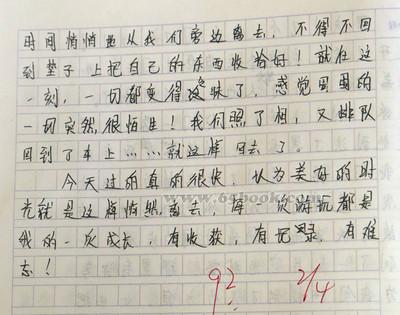 时间悄悄地从我们旁边离去，不得不回
到垫子上把自己的东西收拾好！就在这
一刻，一切都变得没味了，感觉周围的
一切突然很陌生！我们照了相，又排队
回到了车上……就这样回去了。
今天过的真的很快，认为美好的时
光就是这样悄然离去，每一次游玩都是
我的一次成长，有收获，有记录，有难
忘！
www.65book.com
92 2/4